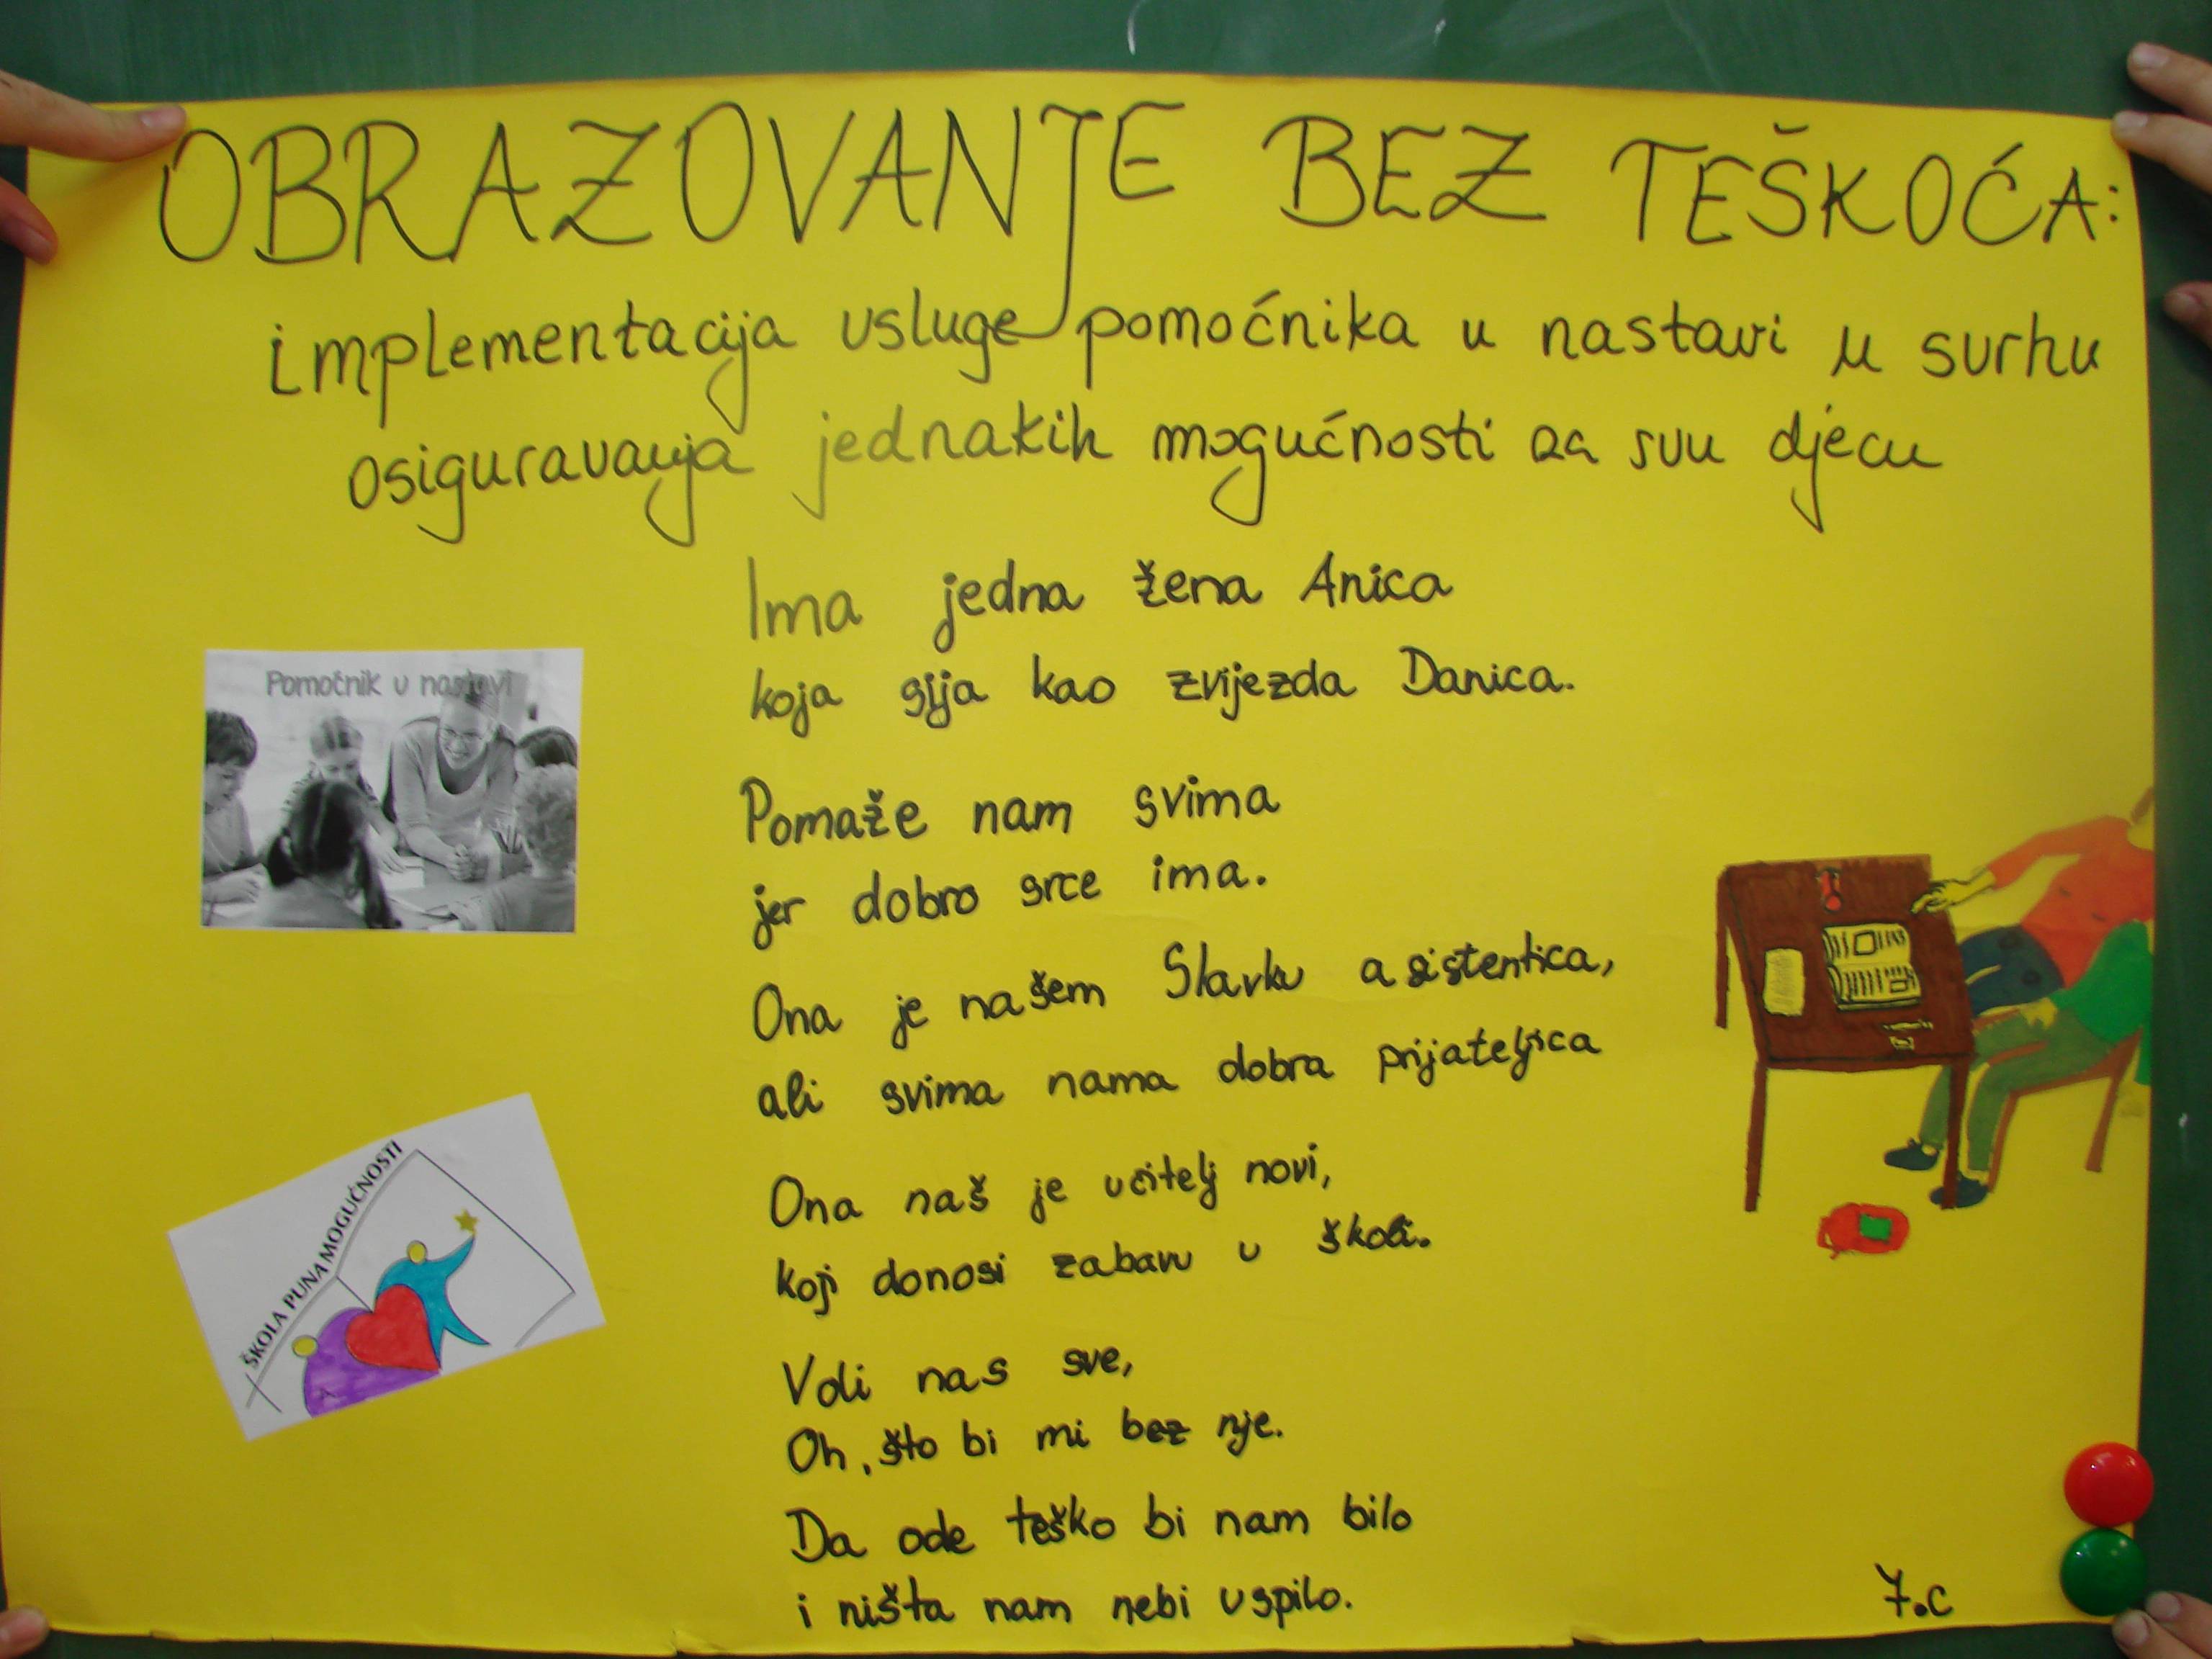 OBRAZOVANJE BEZ TEŠKOĆA:
implementacija usluge pomoćnika u nastavi u svrhu
osiguravanja jednakih mogućnosti za svu djecu
Ima jedna žena Anica
koja sija kao zvijezda Danica.
Pomaže nam svima
jer dobro srce ima.
Ona je našem Slavku asistentica,
ali svima nama dobra prijateljica
Ona naš je učitelj novi,
koji donosi zabavu u školi.
Voli nas sve,
Oh, što bi mi bez nje.
Da ode teško bi nam bilo
i ništa nam nebi uspilo.
7.c
Pomoćnik u nastavi
ŠKOLA PUNA MOGUĆNOSTI